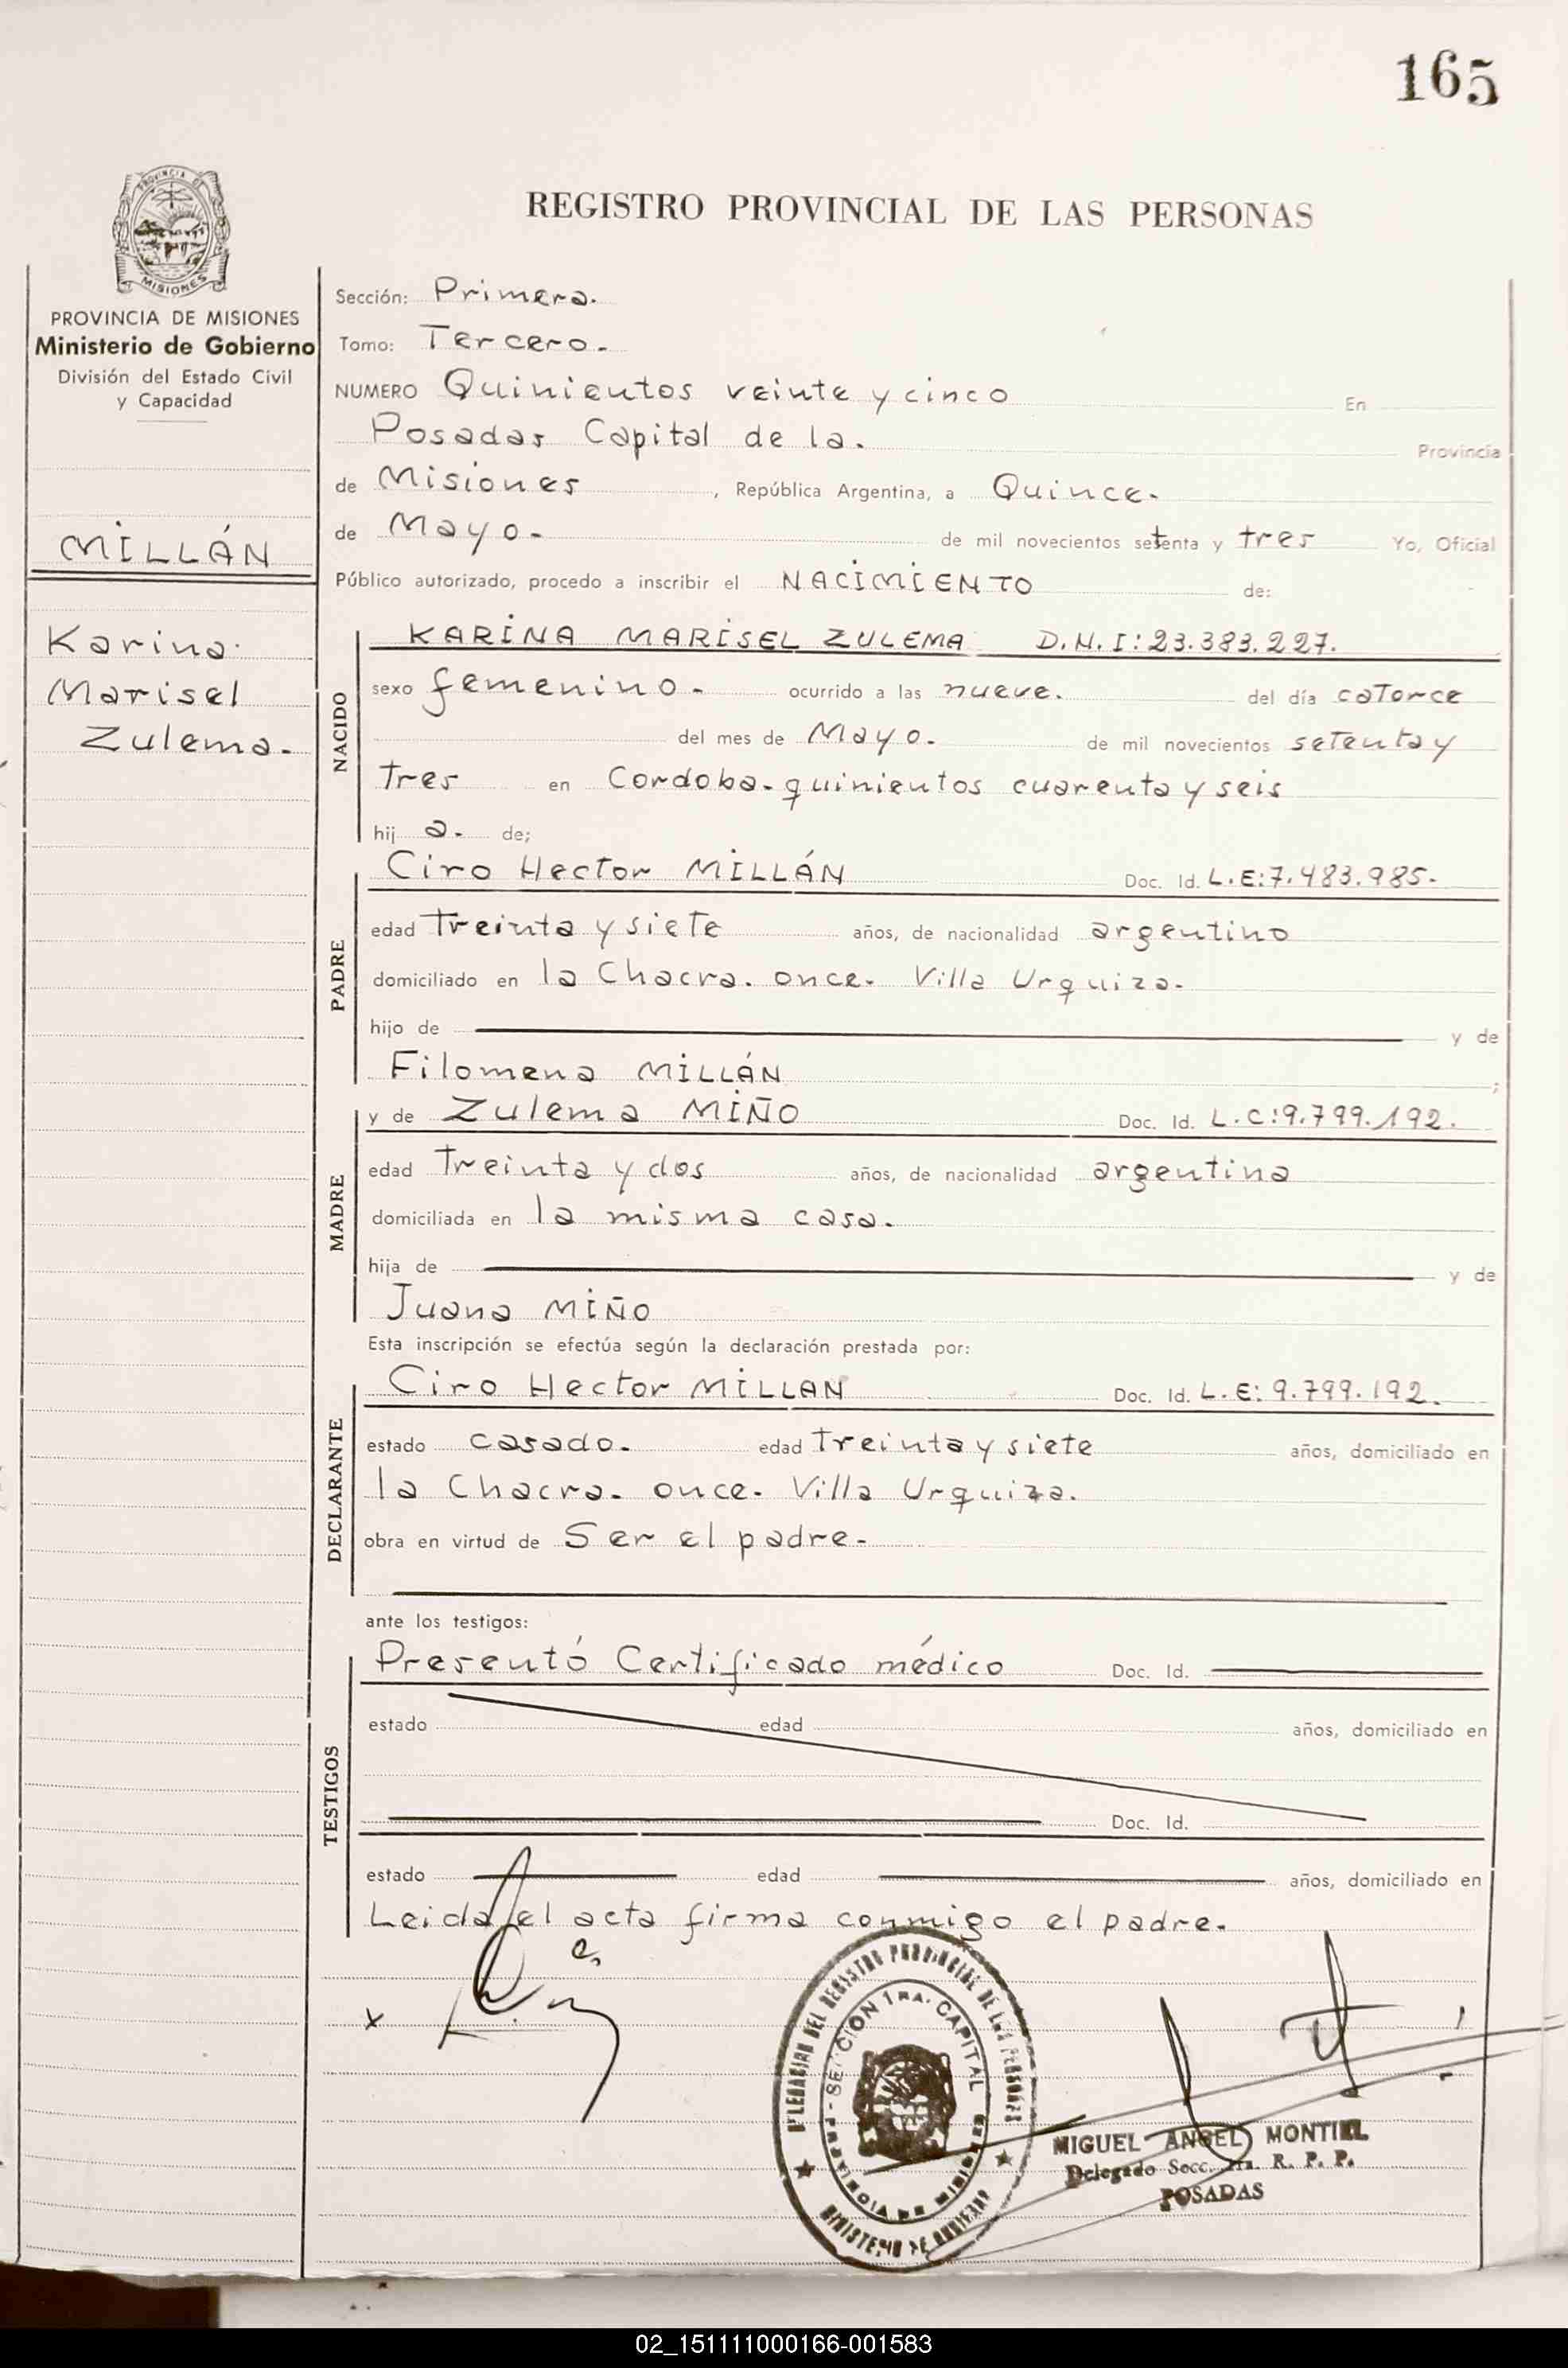 165
PROVINCIA DE
MISIONES
REGISTRO PROVINCIAL DE LAS PERSONAS
PROVINCIA DE MISIONES
Ministerio de Gobierno
División del Estado Civil
y Capacidad
MILLÁN
Karina
Marisel
Zulema.
Sección: Primera.
Tomo: Tercero.
NUMERO Quinientos veinte y cinco En
Posadas Capital de la. Provincia
de Misiones, República Argentina, a Quince.
de Mayo. de mil novecientos setenta y tres Yo, Oficial
Público autorizado, procedo a inscribir el NACIMIENTO de:
NACIDO
KARINA MARISEL ZULEMA D.N.I: 23.383.227.
sexo femenino. ocurrido a las nueve. del día catorce
del mes de Mayo. de mil novecientos setenta y
tres en Cordoba. quinientos cuarenta y seis
hij a. de;
PADRE
Ciro Hector MILLÁN Doc. Id. L.E: 7.483.985.
edad Treinta y siete años, de nacionalidad argentino
domiciliado en la Chacra. once. Villa Urquiza.
hijo de y de
Filomena MILLÁN ;
MADRE
y de Zulema MIÑO Doc. Id. L.C: 9.799.192.
edad Treinta y dos años, de nacionalidad argentina
domiciliada en la misma casa.
hija de y de
Juana MIÑO
Esta inscripción se efectúa según la declaración prestada por:
DECLARANTE
Ciro Hector MILLAN Doc. Id. L.E: 9.799.192.
estado casado. edad Treinta y siete años, domiciliado en
la Chacra. once. Villa Urquiza.
obra en virtud de Ser el padre.
ante los testigos:
TESTIGOS
Presentó Certificado médico Doc. Id.
estado edad años, domiciliado en
Doc. Id.
estado edad años, domiciliado en
Leida el acta firma conmigo el padre.
x
DELEGACION DEL REGISTRO PROVINCIAL DE LAS PERSONAS
SECCION 1RA. CAPITAL
PROVINCIA DE MISIONES
MINISTERIO DE GOBIERNO
MIGUEL ANGEL MONTIEL
Delegado Secc. 1ra. R. P. P.
POSADAS
02_151111000166-001583